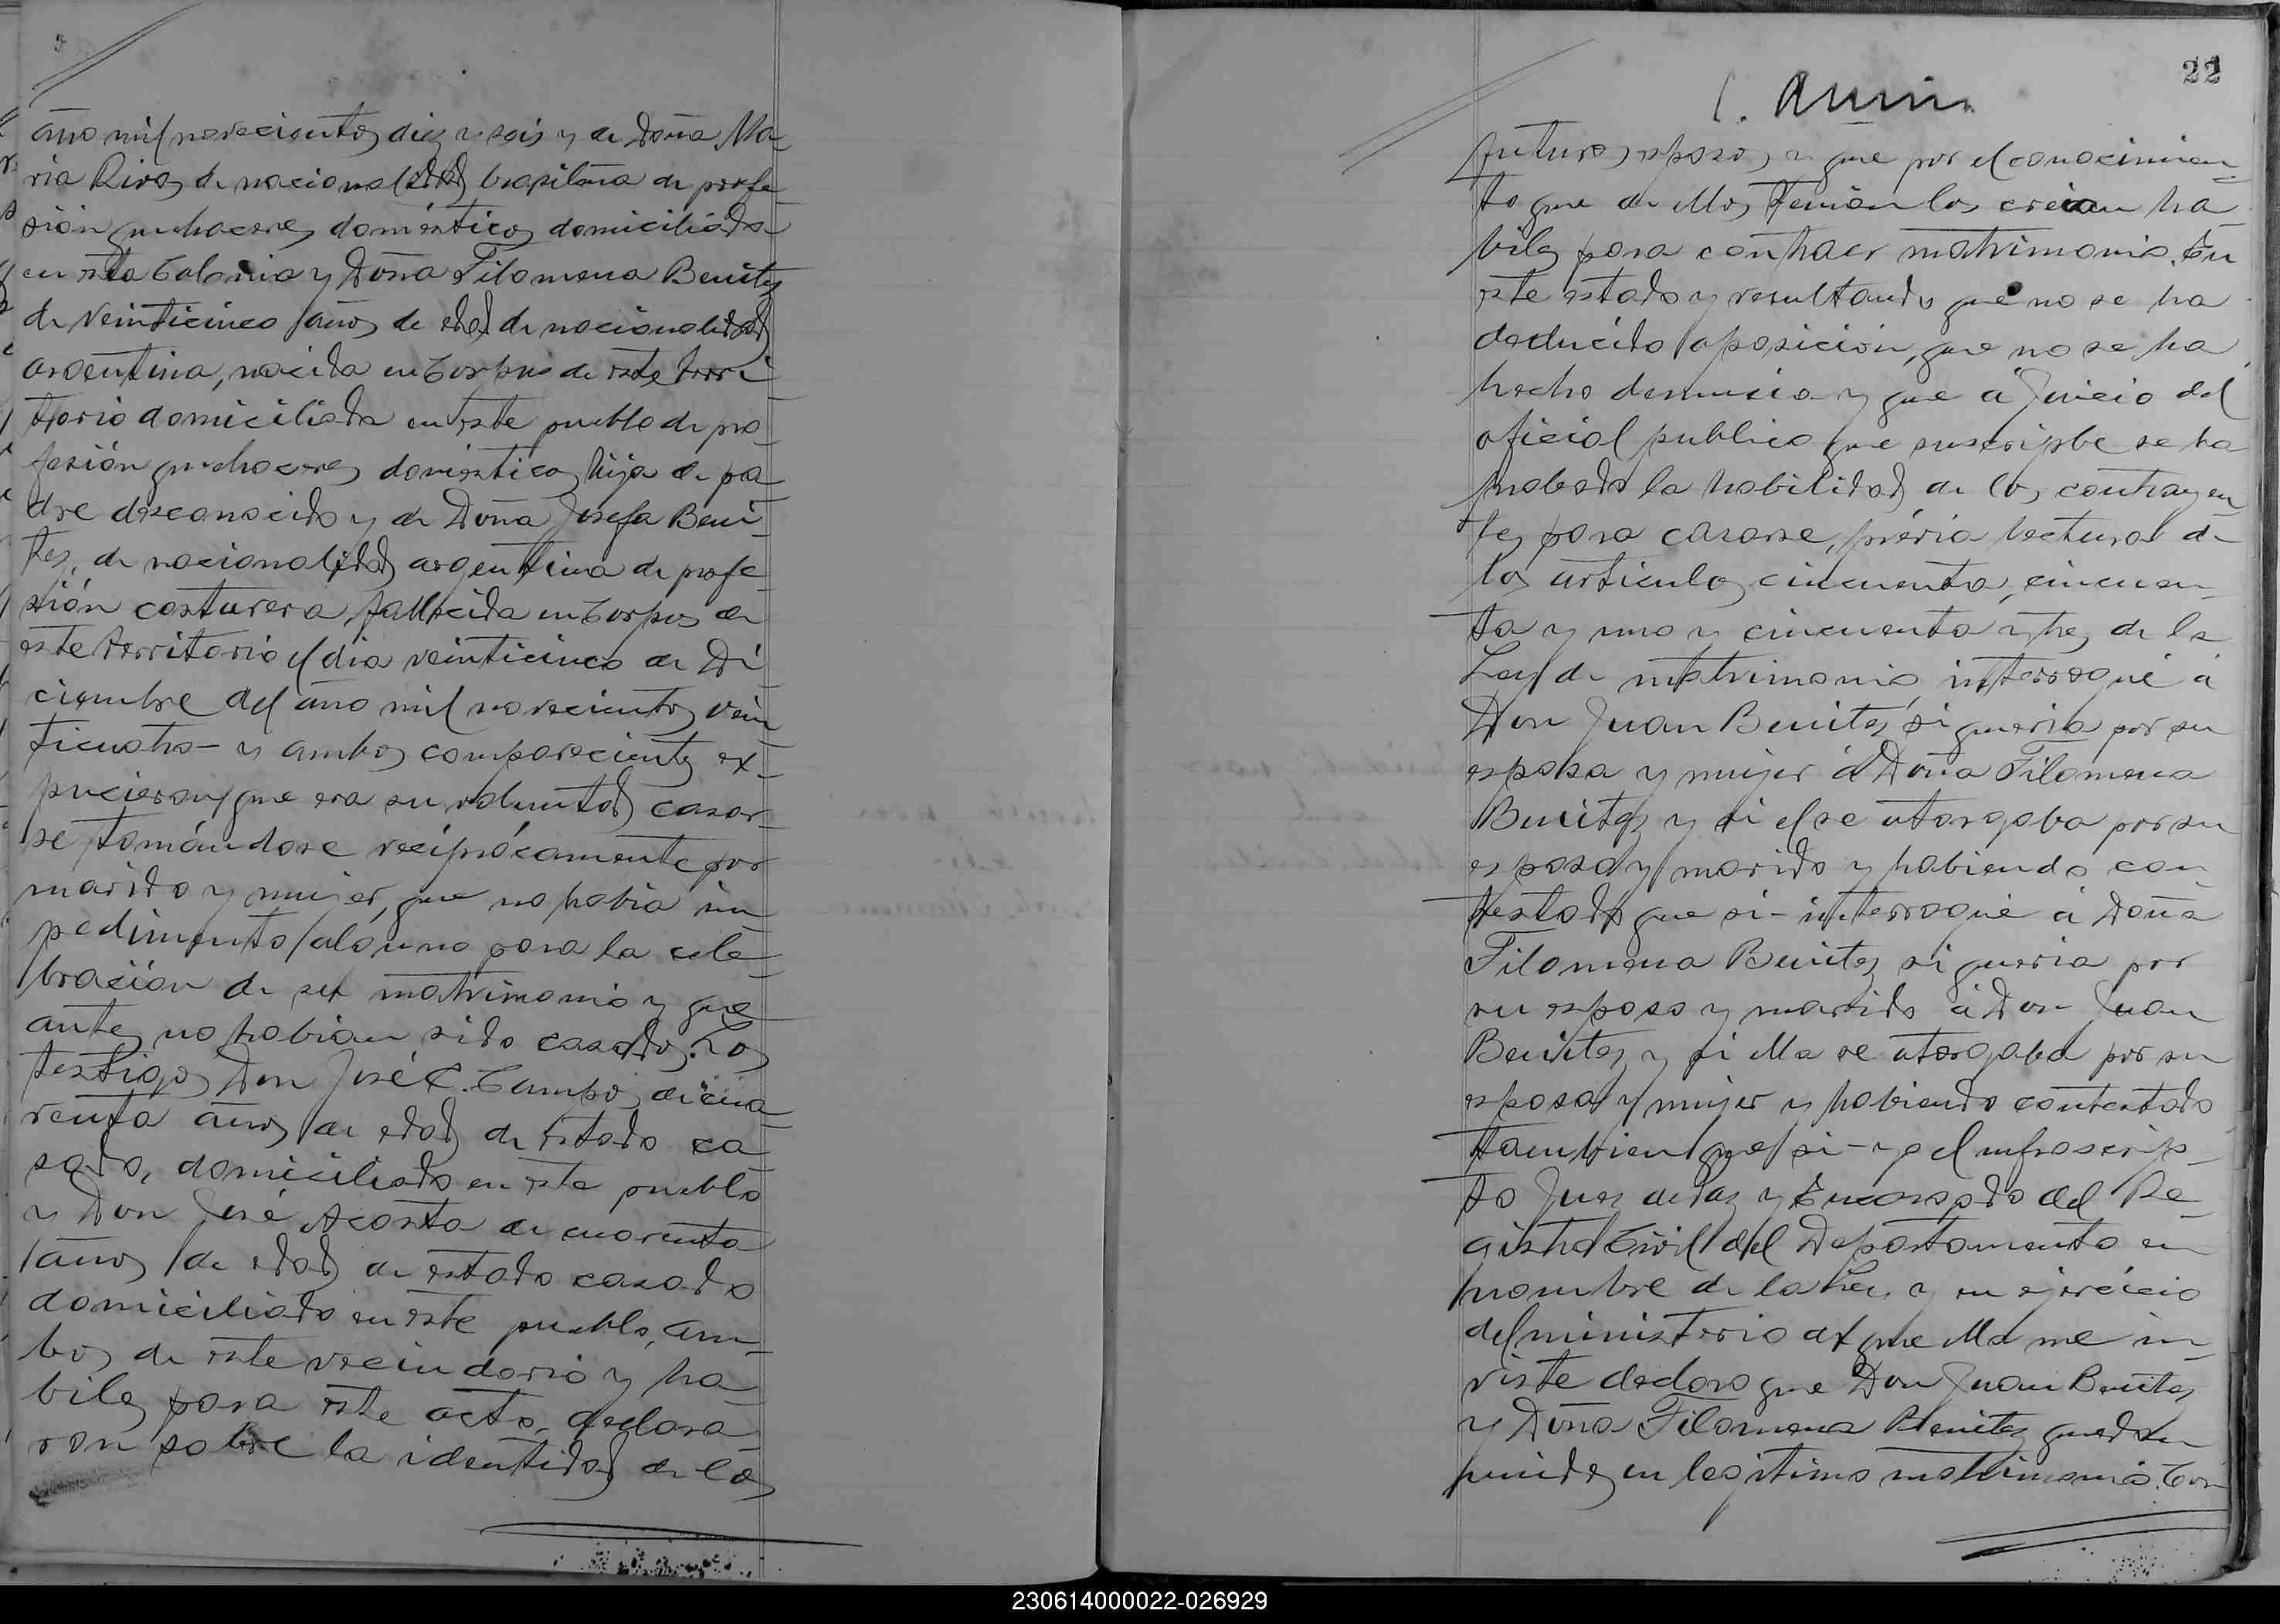 año mil novecientos diez y seis y de Doña Ma-
ria Rivas de nacionalidad brasilera de profe-
sión quehaceres domésticos domiciliada
en esta Colonia y Doña Filomena Benitez
de veinticinco años de edad de nacionalidad
argentina, nacida en Corpus de este terri-
torio domiciliada en este pueblo de pro-
fesión quehaceres domésticos hija de pa-
dre desconocido y de Doña Josefa Beni-
tez, de nacionalidad argentina de profe-
sión costurera, fallecida en Corpus de
este territorio el dia veinticinco de Di-
ciembre del año mil novecientos vein-
ticuatro- y ambos comparecientes ex-
pucieron que era su voluntad casar-
se tomándose recíprócamente por
marido y mujer, que no habia im-
pedimento alguno para la cele-
bración de su matrimonio y que
antes no habian sido casados. Los
testigos Don José C. Campos de cua-
renta años de edad de estado ca-
sado, domiciliado en este pueblo
y Don José Acosta de cuarenta
años de edad de estado casado
domiciliado en este pueblo, am-
bos de este vecindario y ha-
biles para este acto, declara-
ron sobre la identidad de los
22
futuros esposos y que por el conocimien-
to que de ellos tenian los creian ha-
biles para contraer matrimonio. En
este estado y resultando que no se ha
deducido oposición, que no se ha
hecho denuncia y que á juicio del
oficial publico que suscripbe se ha
probado la habilidad de los contrayen-
tes para casarse, prévia lectura de
los articulos cincuenta, cincuen-
ta y uno y cincuenta y tres de la
Ley de matrimonio interrogué á
Don Juan Benitez si queria por su
esposa y mujer á Doña Filomena
Benitez y si el se otorgaba por su
esposo y marido y habiendo con-
testado que si- interrogué á Doña
Filomena Benitez si queria por
su esposo y marido á Don Juan
Benitez y si ella se otorgaba por su
esposa y mujer y habiendo contestado
tambien que si- yo el infrascrip-
to Juez de Paz y Encargado del Re-
gistro Civil del Departamento en
nombre de la Ley y en ejercicio
del ministerio de que ella me in-
viste declaro que Don Juan Benitez
y Doña Filomena Benitez quedan
unidos en legitimo matrimonio. Con
230614000022-026929